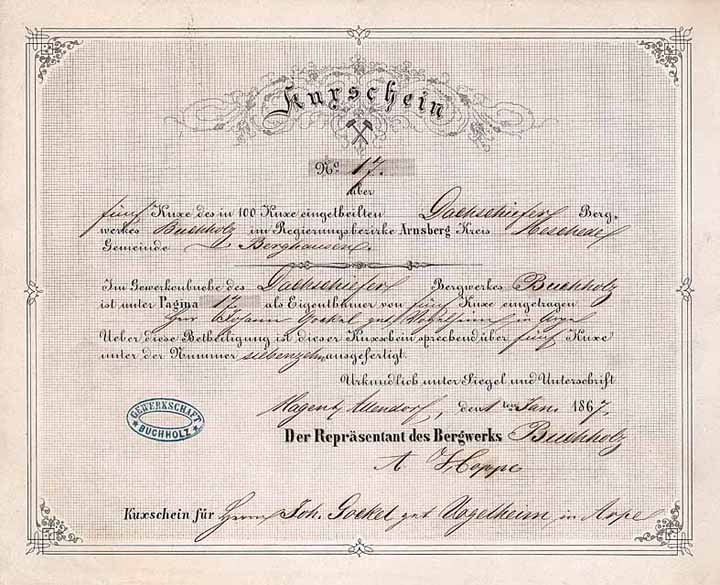 Kuxschein
No. 17.
über
fünf Kuxe des in 100 Kuxe eingetheilten Dachschiefer Berg-
werkes Buchholz im Regierungsbezirke Arnsberg Kreis Meschede
Gemeinde Berghausen.
Im Gewerkenbuche des Dachschiefer Bergwerkes Buchholz
ist unter Pagina 17 als Eigenthümer von fünf Kuxe eingetragen
Herr Johann Goekel gnt Vogelheim in Arpe
Ueber diese Betheiligung ist dieser Kuxschein sprechend über fünf Kuxe
unter der Nummer siebenzehn ausgefertigt.
Urkundlich unter Siegel und Unterschrift
Allendorf, den 1ten Jan. 1867.
GEWERKSCHAFT
BUCHHOLZ
Der Repräsentant des Bergwerks Buchholz
A Hoppe
Kuxschein für Herrn Joh. Goekel gnt Vogelheim in Arpe